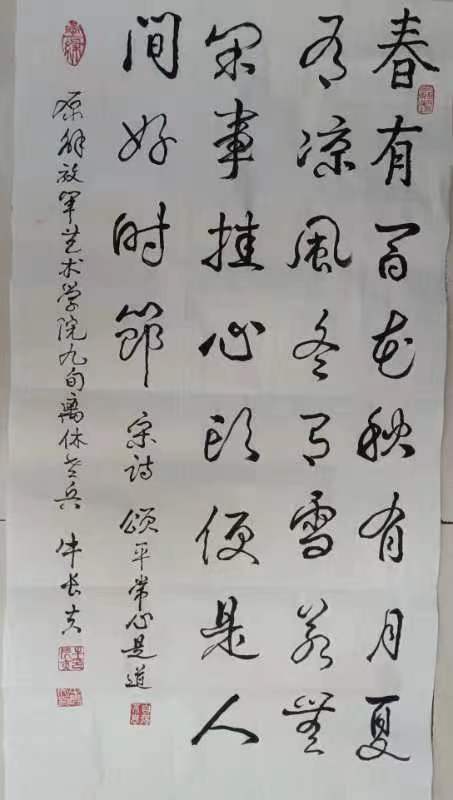 春有百花秋有月夏
有凉風冬有雪若無
闲事挂心头便是人
间好时節 宋诗 颂平常心是道
原解放军艺术学院九旬离休老兵 牛长